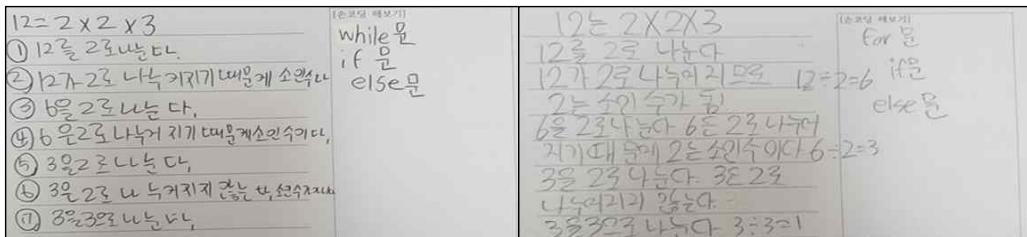 12=2×2×3
① 12를 2로나눈다.
② 12가 2로 나누어지기 때문에 소인수다
③ 6을2로나눈다,
④ 6은2로나누어 지기 때문에소인수이다,
⑤ 3을2로나눈다,
⑥ 3은 2로 나누어지지 않는다,
⑦ 3을3으로나눈다,
[손코딩 해보기]
while문
if 문
else문
12는 2×2×3
12를 2로 나눈다
12가 2로 나누어지므로 12÷2=6
2는 소인수가 됨
6을 2로나눈다 6은 2로나누어
지기때문에 2는 소인수이다 6÷2=3
3을 2로 나눈다. 3은 2로
나누어지지 않는다.
3을3으로 나눈다 3÷3=1
[손코딩 해보기]
for 문
if문
else 문